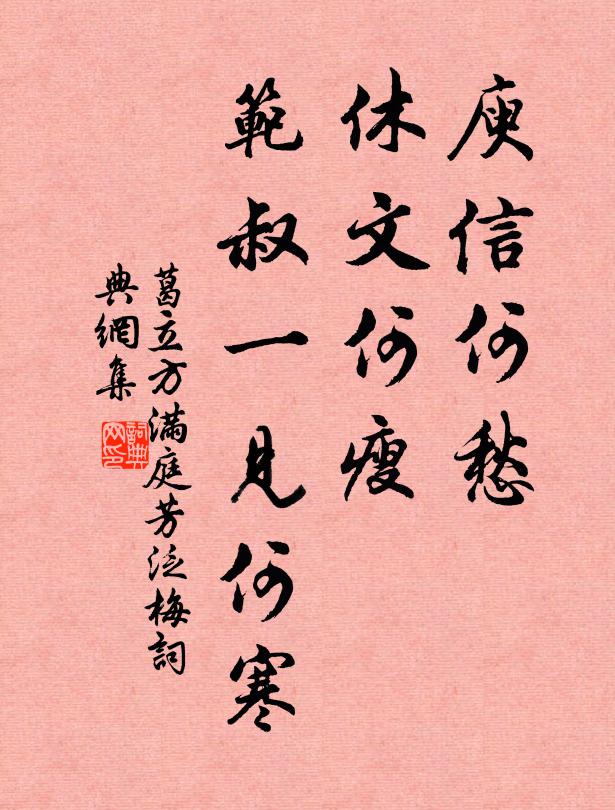 庾信何愁
休文何瘦
範叔一見何寒
葛立方滿庭芳泛梅詞
典網集
詞典网印